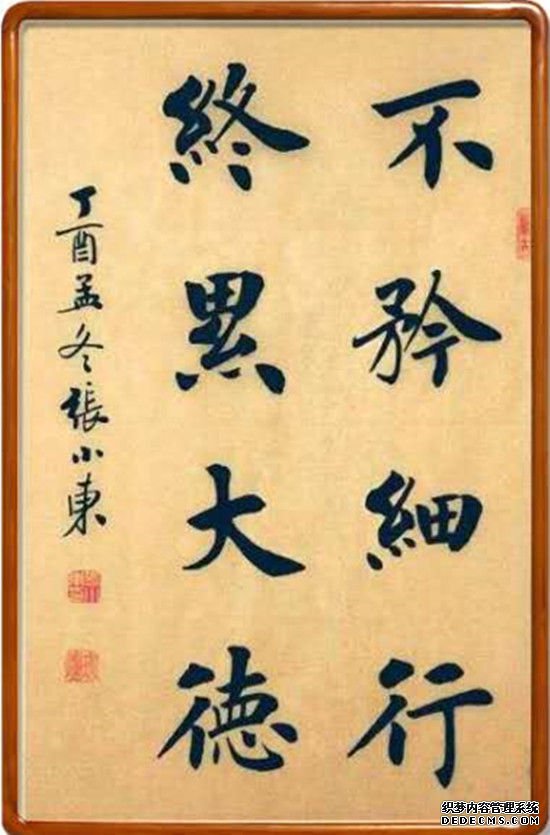 不矜細行
終累大德
丁酉孟冬張小東
织梦内容管理系统
DEDECMS.COM